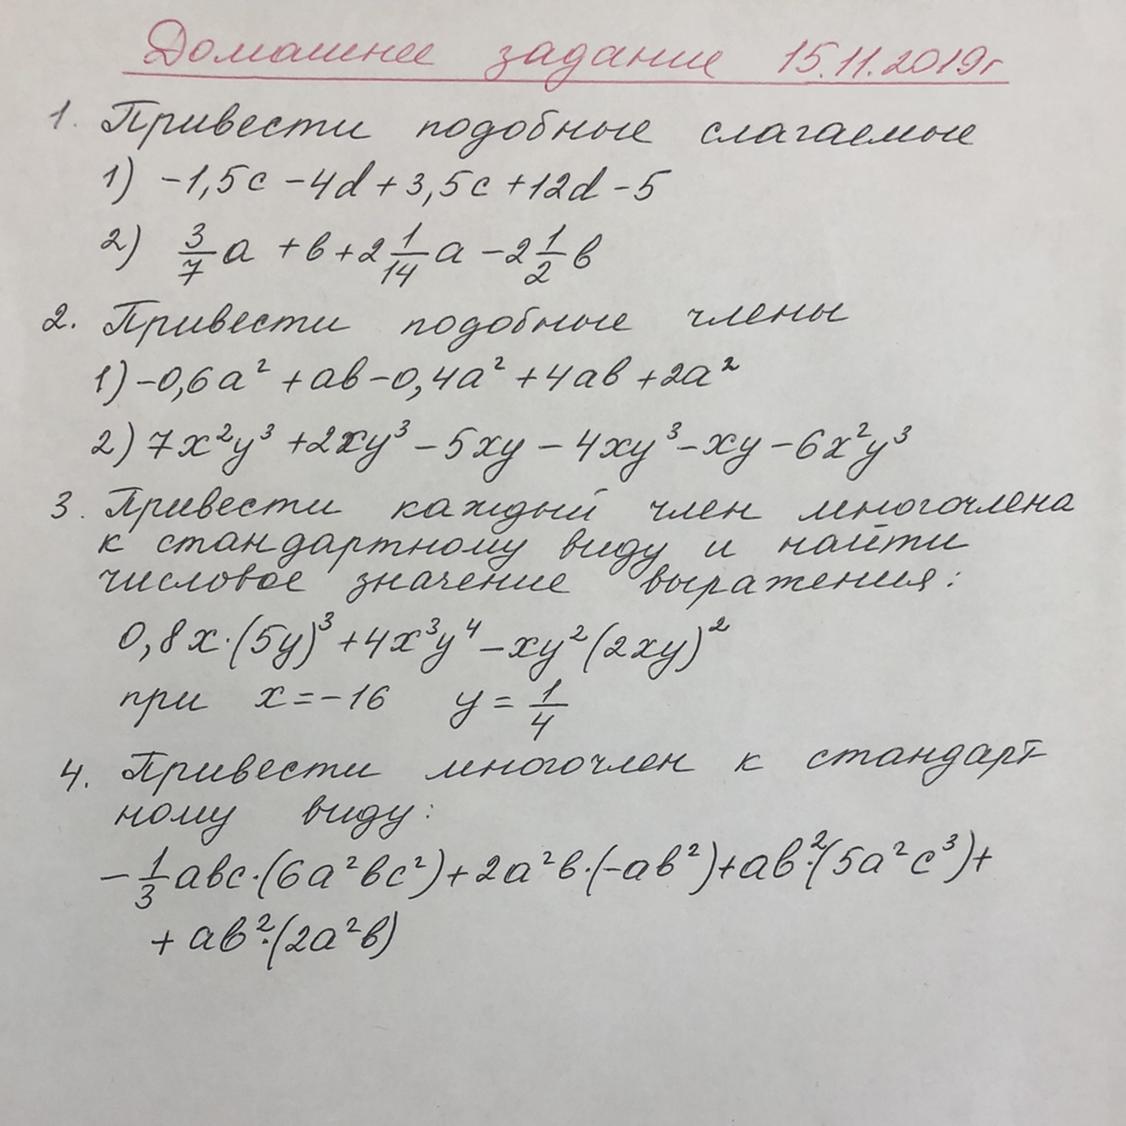 Домашнее задание 15.11.2019г
1. Привести подобные слагаемые
1) -1,5c -4d + 3,5c +12d -5
2) 3/7 a + в + 2 1/14 a - 2 1/2 в
2. Привести подобные члены
1) -0,6a² + aв - 0,4a² + 4aв + 2a²
2) 7x²y³ + 2xy³ - 5xy - 4xy³ - xy - 6x²y³
3. Привести каждый член многочлена
к стандартному виду и найти
числовое значение выражения:
0,8x·(5y)³ + 4x³y⁴ - xy²(2xy)²
при x = -16 y = 1/4
4. Привести многочлен к стандарт-
ному виду:
- 1/3 aвc·(6a²вc²) + 2a²в·(-aв²) + aв²·(5a²c³) +
+ aв²·(2a²в)